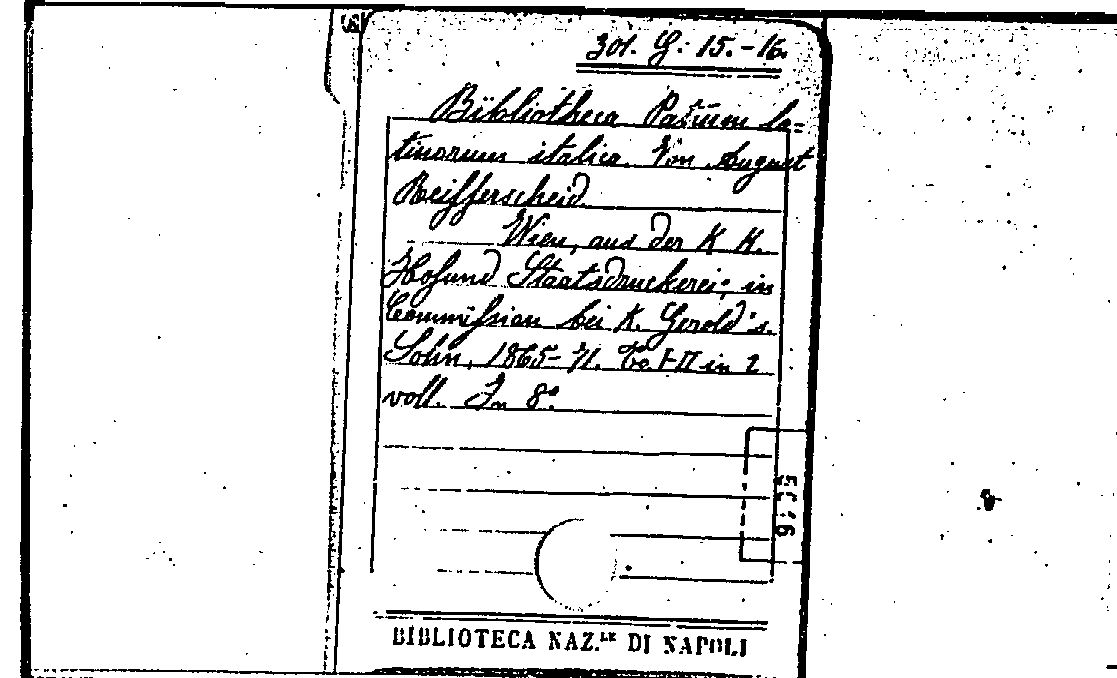 301. G. 15.-16.
Bibliotheca Patrum la=
tinorum italica. Von August
Reifferscheid
Wien, aus der K. K.
Hofund Staatsdruckerei; in
Commission bei K. Gerold's.
Sohn, 1865-71. To. I-II in 2
voll. In 8º.
BIBLIOTECA NAZ.LE DI NAPOLI